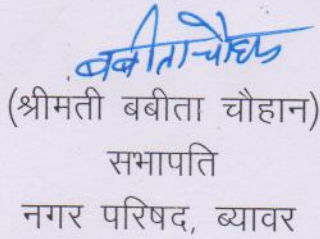 बबीता चौहान
(श्रीमती बबीता चौहान)
सभापति
नगर परिषद, ब्यावर